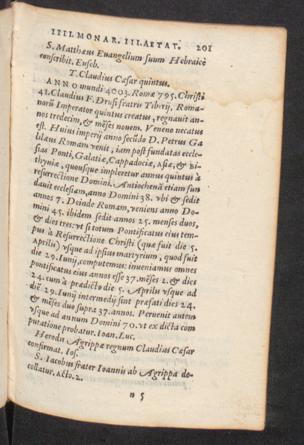 IIII. MONAR. III. AETAT. 201
S. Matthæus Euangelium suum Hebraicè
conscribit. Euseb.
T. Claudius Cæsar quintus.
ANNO mundi 4003. Romæ 795. Christi
41. Claudius F. Drusi fratris Tiberij, Roma-
norũ Imperator quintus creatur, regnauit an-
nos tredecim, & mẽses nouem. Veneno necatus
est. Huius imperij anno secũdo D. Petrus Ga
lilæus Romam venit, iam post fundatas eccle-
sias Ponti, Galatiæ, Cappadociæ, Asiæ, & Bi-
thyniæ, quousque impleretur annus quintus à
resurrectione Domini. Antiochenã etiam fun
dauit ecclesiam, anno Domini 38. vbi & sedit
annos 7. Deinde Romam, veniens anno Do-
mini 45. ibidem sedit annos 25. menses duos,
& dies tres: vt si totum Pontificatus eius tem-
pus à Resurrectione Christi (quæ fuit die 5.
Aprilis) vsque ad ipsius martyrium, quod fuit
die 29. Iunij, computemus: inueniamus omnes
pontificatus eius annos esse 37. mẽses 2. & dies
24. cum à prædicto die 5. Aprilis vsque ad
diẽ 29. Iunij intermedij sint præfati dies 24.
& mẽses duo supra 37. annos. Peruenit autem
vsque ad annum Domini 70. vt ex dicta com
putatione probatur. Ioan. Luc.
Herodis Agrippæ regnum Claudius Cæsar
confirmat. Ios.
S. Iacobus frater Ioannis ab Agrippa de-
collatur. Acto. 2.
n 5